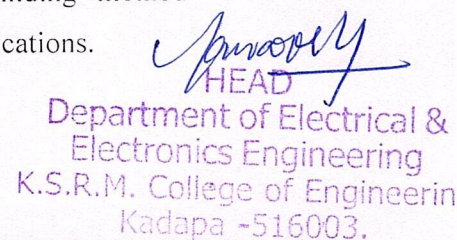 cations.
HEAD
Department of Electrical &
Electronics Engineering
K.S.R.M. College of Engineerin
Kadapa -516003.